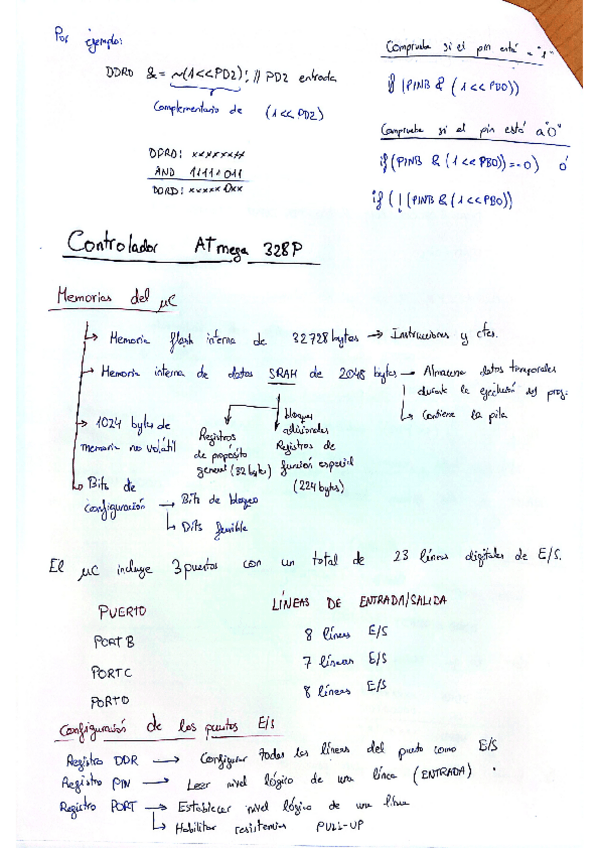 Por ejemplo:
DDRD &= ~(1<<PD2); // PD2 entrada
Complementario de (1<<PD2)
DDRD: xxxxxxxx
AND 11111011
DDRD: xxxxx0xx
Comprueba si el pin está a "1"
if (PINB & (1<<PB0))
Comprueba si el pin está a "0"
if (PINB & (1<<PB0)==0) o
if (!(PINB & (1<<PB0))
Controlador ATmega 328P
Memorias del µC
↳ Memoria flash interna de 32728 bytes → Instrucciones y ctes.
→ Memoria interna de datos SRAM de 2048 bytes → Almacena datos temporales
durante la ejecución del prog.
↳ Contiene la pila
→ 1024 bytes de
memoria no volátil
Registros
de propósito
general (32 bytes)
bloques
adicionales
Registros de
función especial
(224 bytes)
↳ Bits de
configuración → Bits de bloqueo
↳ Bits fusible
El µC incluye 3 puertos con un total de 23 líneas digitales de E/S.
PUERTO LÍNEAS DE ENTRADA/SALIDA
PORT B 8 líneas E/S
PORT C 7 líneas E/S
PORT D 8 líneas E/S
Configuración de los puertos E/S
Registro DDR → Configurar todas las líneas del puerto como E/S
Registro PIN → Leer nivel lógico de una línea (ENTRADA)
Registro PORT → Establecer nivel lógico de una línea
↳ Habilitar resistencias PULL-UP